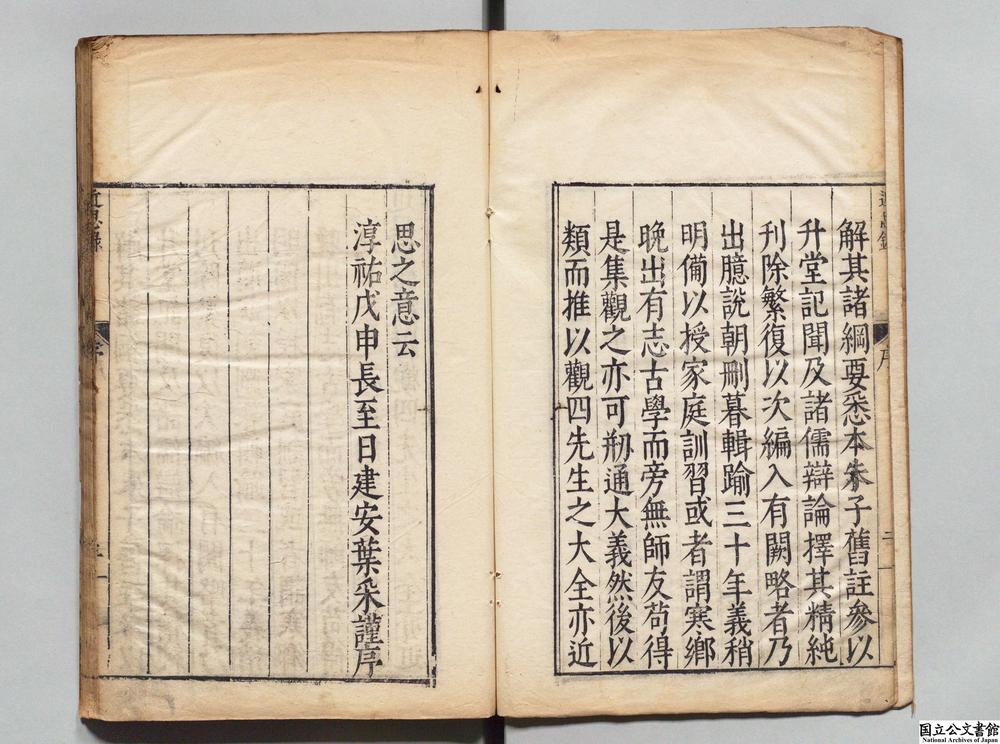 解其諸綱要悉本朱子舊註參以
升堂記聞及諸儒辯論擇其精純
刊除繁復以次編入有闕略者乃
出臆說朝刪暮輯踰三十年義稍
明備以授家庭訓習或者謂寒鄉
晚出有志古學而旁無師友苟得
是集觀之亦可刱通大義然後以
類而推以觀四先生之大全亦近
思之意云
淳祐戊申長至日建安葉采謹序
序
二
国立公文書館
National Archives of Japan